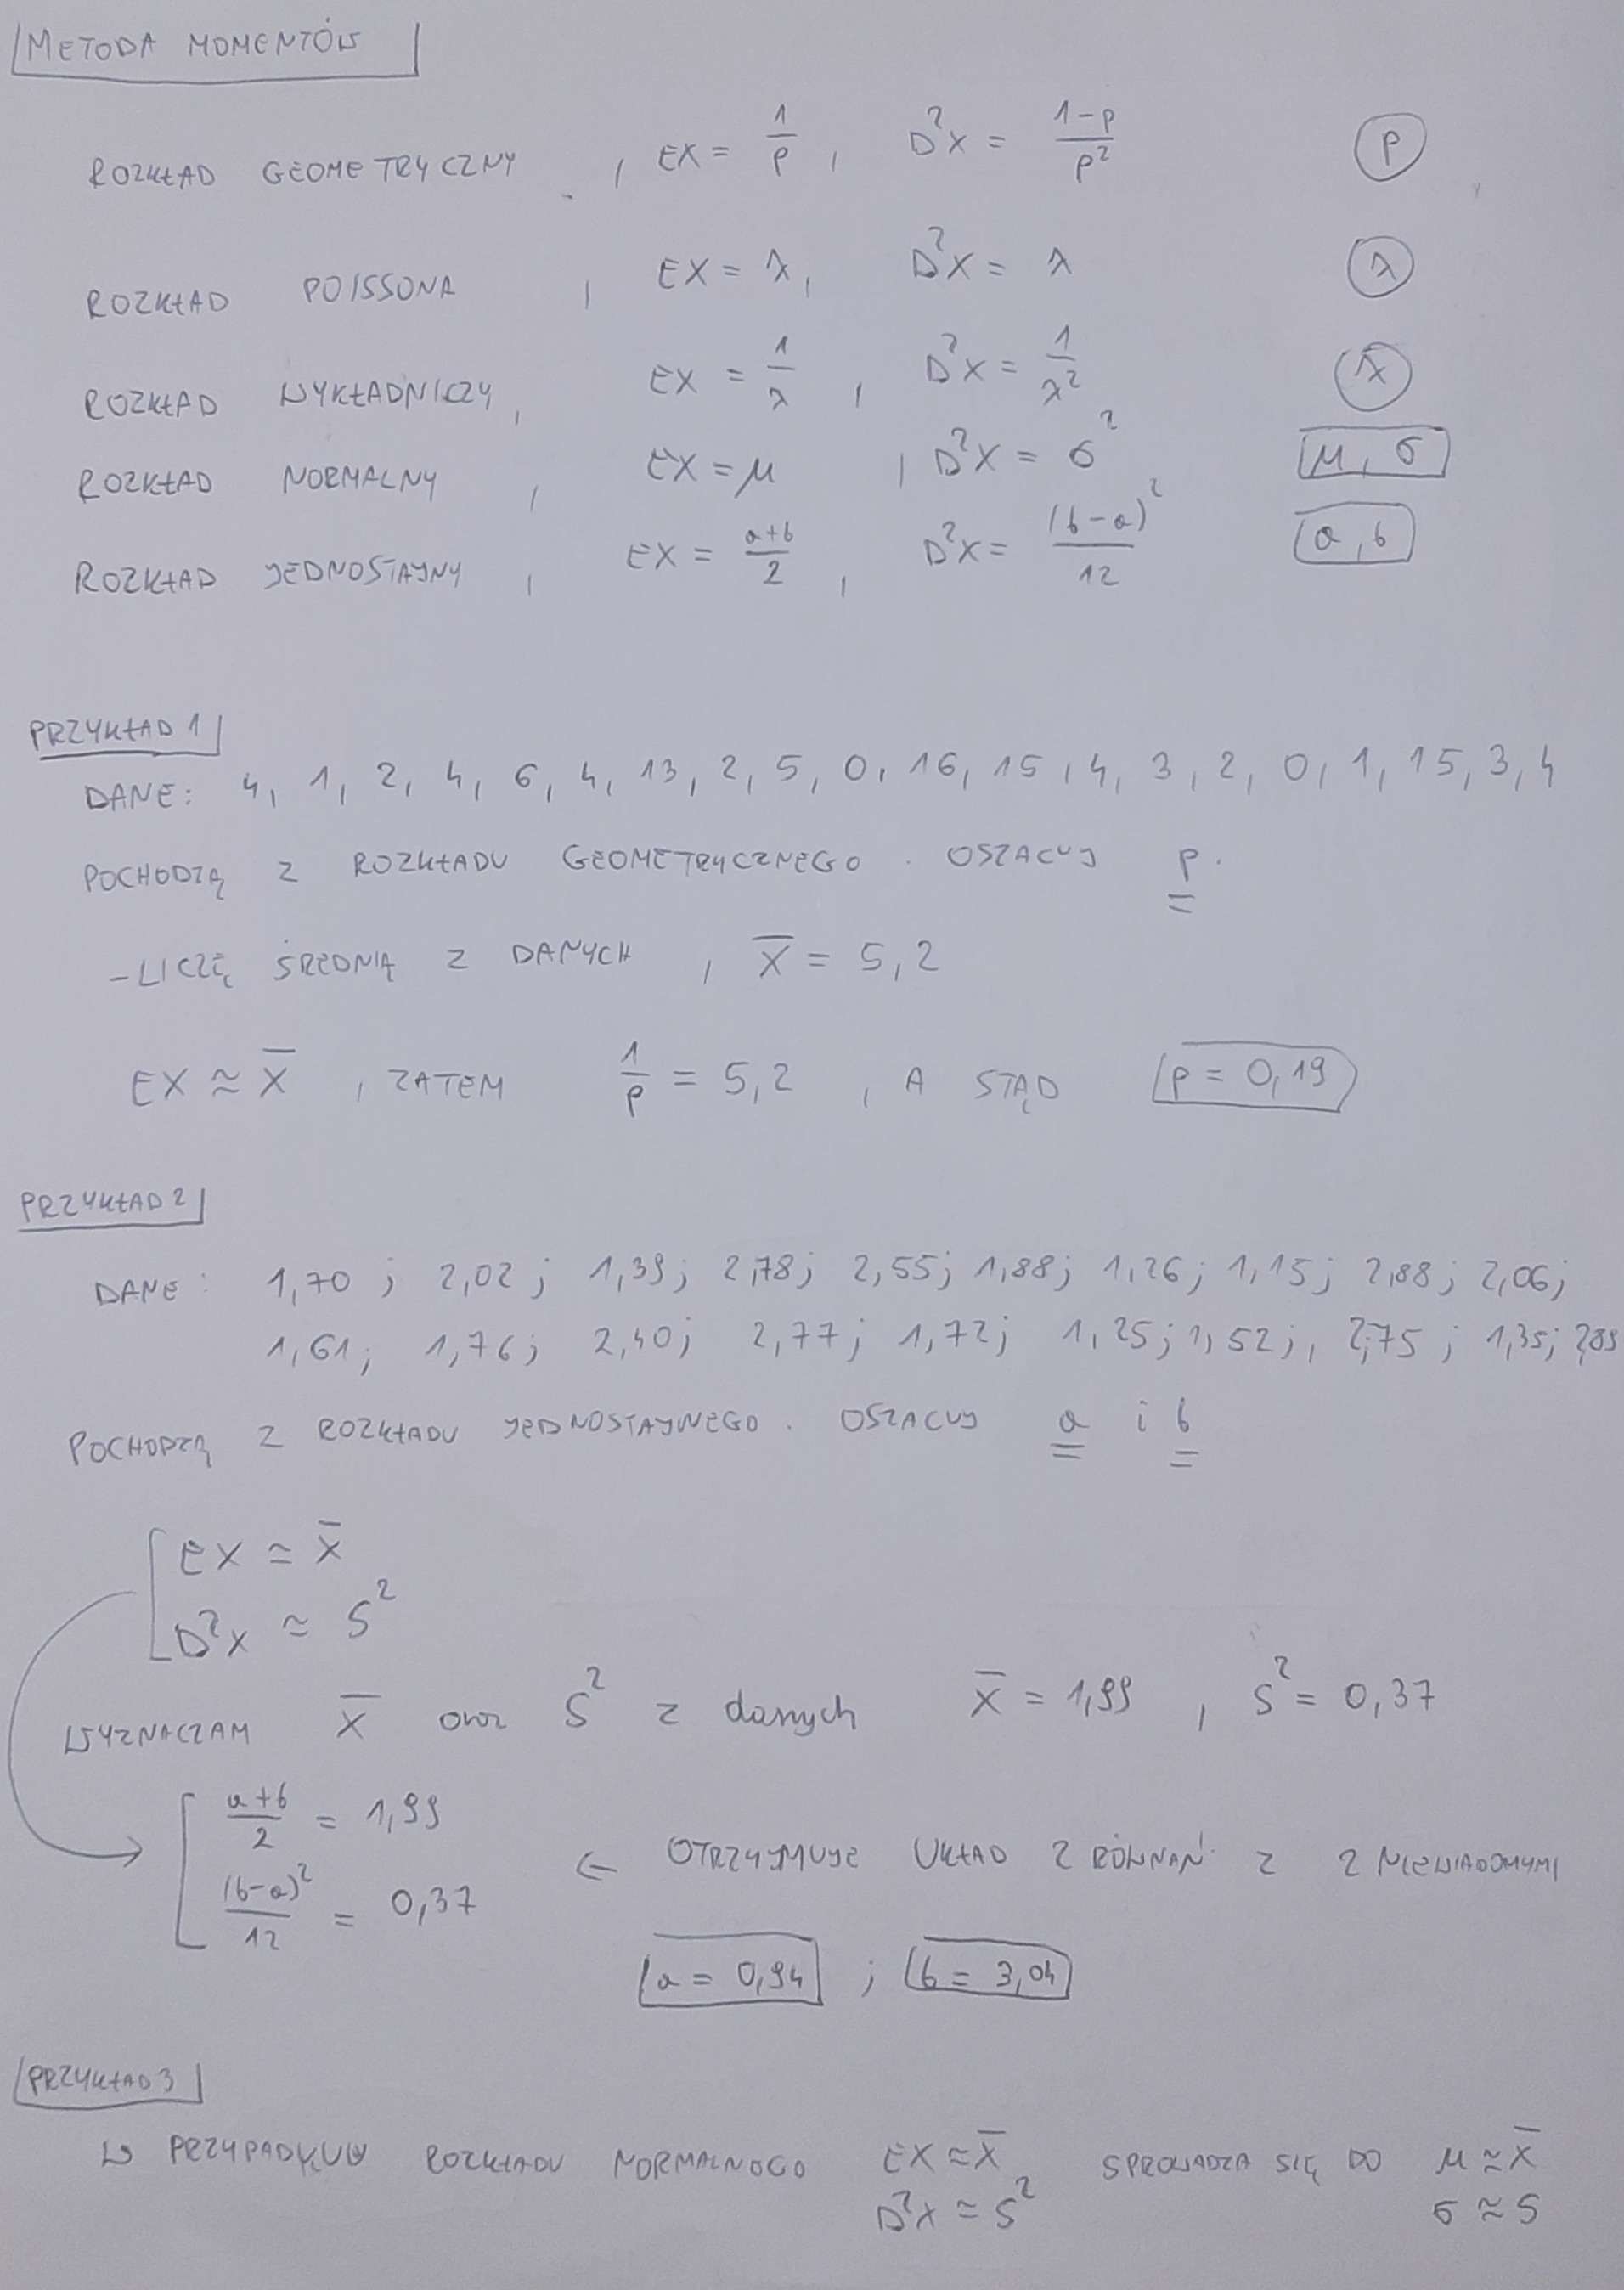 METODA MOMENTÓW
ROZKŁAD GEOMETRYCZNY , EX = 1/p , D²X = (1-p)/p² p
ROZKŁAD POISSONA , EX = λ, D²X = λ λ
ROZKŁAD WYKŁADNICZY, EX = 1/λ , D²X = 1/λ² λ
ROZKŁAD NORMALNY , EX = μ , D²X = σ² μ, σ
ROZKŁAD JEDNOSTAJNY , EX = (a+b)/2 , D²X = (b-a)²/12 a, b
PRZYKŁAD 1
DANE: 4, 1, 2, 4, 6, 4, 13, 2, 5, 0, 16, 15, 4, 3, 2, 0, 1, 15, 3, 4
POCHODZĄ Z ROZKŁADU GEOMETRYCZNEGO. OSZACUJ p.
- LICZĘ ŚREDNIĄ Z DANYCH , X̄ = 5,2
EX ≈ X̄ , ZATEM 1/p = 5,2 , A STĄD p = 0,19
PRZYKŁAD 2
DANE: 1,70 ; 2,02 ; 1,39; 2,78; 2,55; 1,88; 1,26; 1,15; 2,88; 2,06;
1,61; 1,76; 2,40; 2,77; 1,72; 1,25; 1,52; , 2,75 ; 1,35; 2,89
POCHODZĄ Z ROZKŁADU JEDNOSTAJNEGO. OSZACUJ a i b
EX ≈ X̄
D²X ≈ S²
WYZNACZAM X̄ oraz S² z danych X̄ = 1,99 , S² = 0,37
(a+b)/2 = 1,99
← OTRZYMUJE UKŁAD 2 RÓWNAŃ Z 2 NIEWIADOMYMI
(b-a)²/12 = 0,37
a = 0,94 ; b = 3,04
PRZYKŁAD 3
W PRZYPADKU ROZKŁADU NORMALNOGO EX ≈ X̄ SPROWADZA SIĘ DO μ ≈ X̄
D²X ≈ S² σ ≈ S